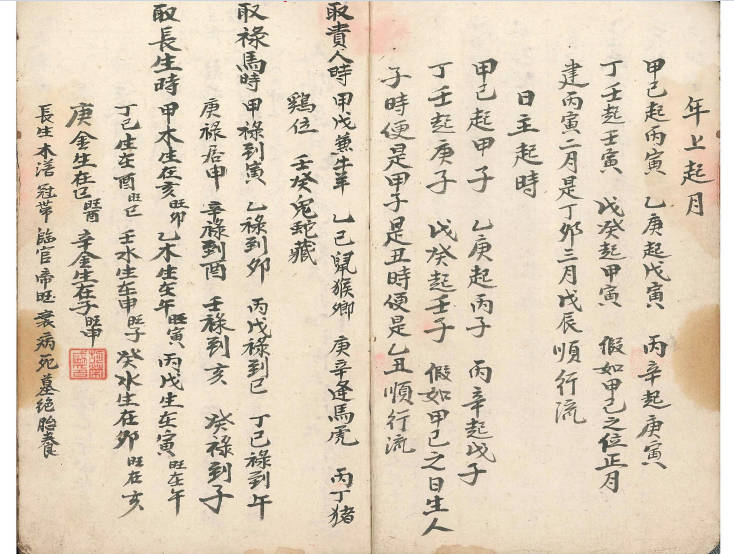 年上起月
甲己起丙寅　乙庚起戊寅　丙辛起庚寅
丁壬起壬寅　戊癸起甲寅　假如甲己之位正月
建丙寅二月是丁卯三月戊辰順行流
日主起時
甲己起甲子　乙庚起丙子　丙辛起戊子
丁壬起庚子　戊癸起壬子　假如甲己之日生人
子時便是甲子是丑時便是乙丑順行流
取貴人時　甲戊兼牛羊　乙己鼠猴鄉　庚辛逢馬虎　丙丁猪
鷄位　壬癸兔蛇藏
取祿馬時　甲祿到寅　乙祿到卯　丙戊祿到巳　丁己祿到午
庚祿居申　辛祿到酉　壬祿到亥　癸祿到子
取長生時　甲木生在亥旺卯　乙木生在午旺寅　丙戊生在寅旺在午
丁己生在酉旺巳　壬水生在申旺子　癸水生在卯旺在亥
庚金生在巳旺酉　辛金生在子旺申
長生　木浴　冠帶　臨官　帝旺　衰病死墓絕胎養